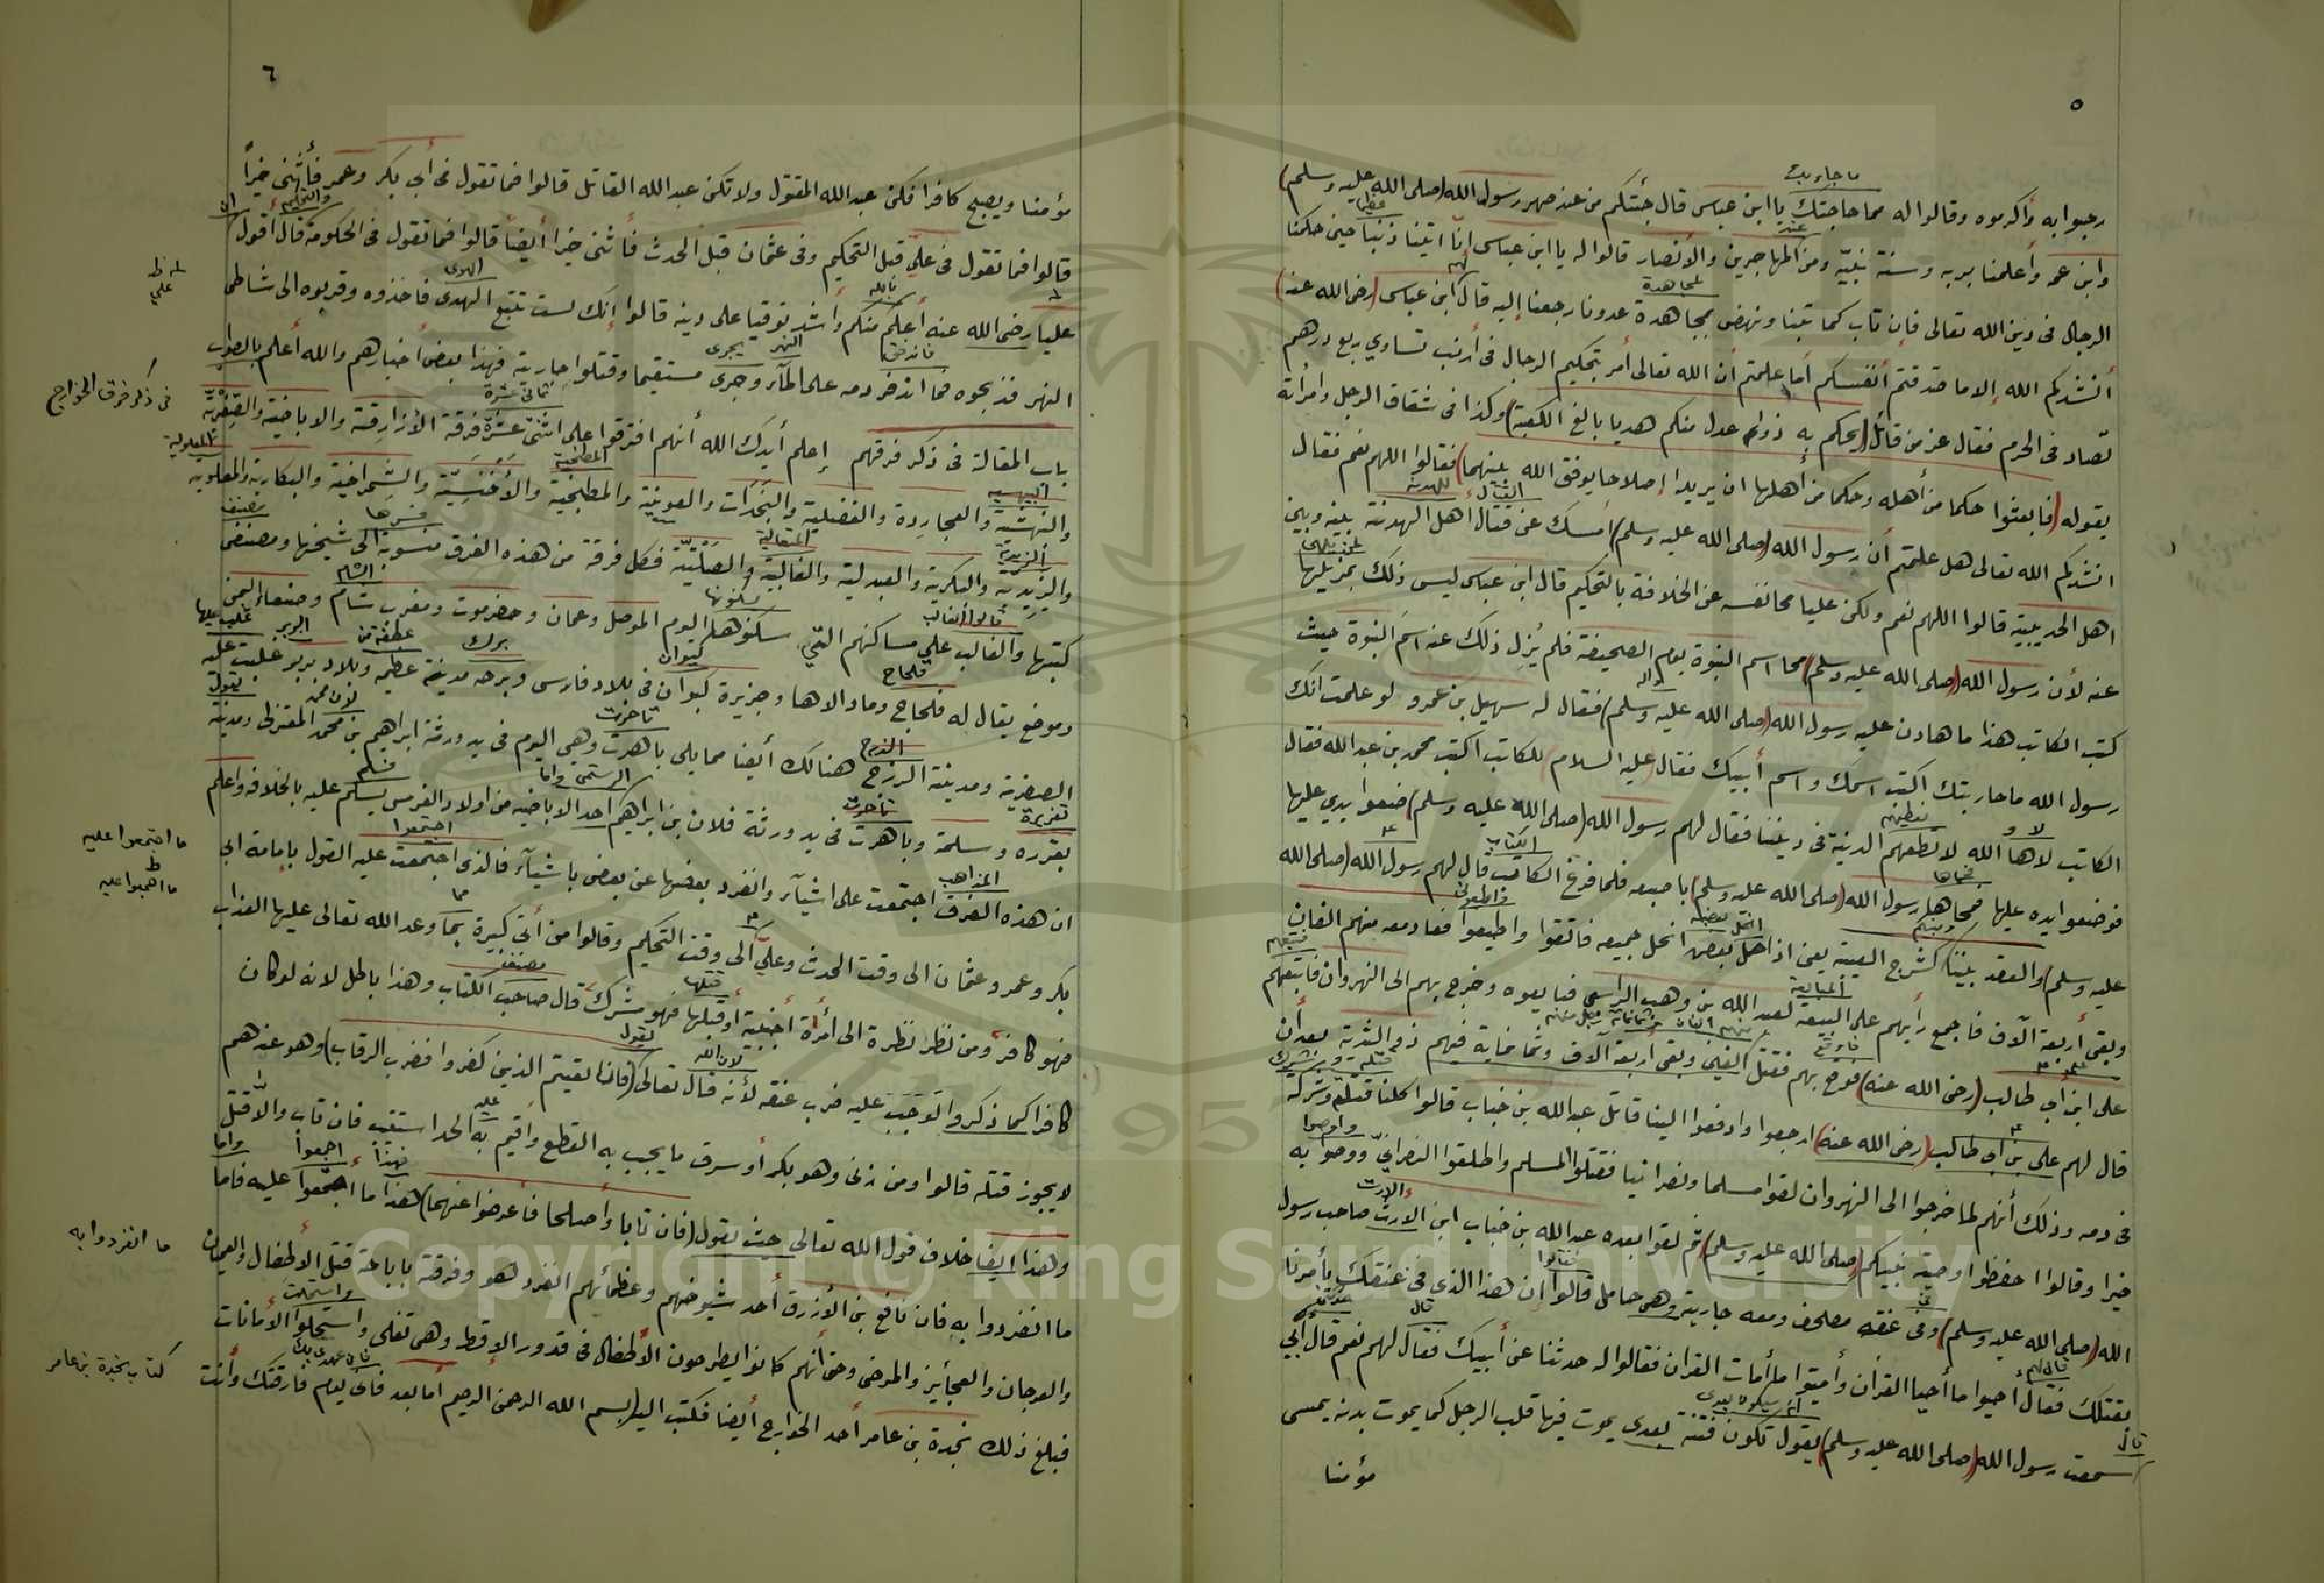 ٥
ما جاء بك
رحبوا به وأكرموه وقالوا له مما حاجتك يا ابن عباس قال جئتكم من عند صهر رسول الله (صلى الله عليه وسلم)
وابن عمه وأعلمنا بربه وسنة نبيه ومن المهاجرين والأنصار قالوا له يا ابن عباس إنا اتينا ذنبا حين حكمنا
الرجال في دين الله تعالى فإن تاب كما تبنا ونهض بمجاهدة عدونا رجعنا إليه قال ابن عباس (رضي الله عنه)
أنشدكم الله إلا ما صدقتم أنفسكم أما علمتم أن الله تعالى أمر بتحكيم الرجال في أرنب تساوي ربع درهم
تصاد في الحرم فقال عز من قائل (يحكم به ذوا عدل منكم هديا بالغ الكعبة) وكذا في شقاق الرجل وامرأته
بقوله (فابعثوا حكما من أهله وحكما من أهلها ان يريدا إصلاحا يوفق الله بينهما) فقالوا اللهم نعم فقال
انشدكم الله تعالى هل علمتم أن رسول الله (صلى الله عليه وسلم) أمسك عن قتال اهل الهدنة بينه وبين
اهل الحديبية قالوا اللهم نعم ولكن عليا محا نفسه عن الخلافة بالتحكيم قال ابن عباس ليس ذلك بمزيلها
عنه لأن رسول الله (صلى الله عليه وسلم) محا اسم النبوة يوم الصحيفة فلم يزل ذلك عنه اسم النبوة حيث
كتب الكاتب هذا ما هادن عليه رسول الله (صلى الله عليه وسلم) فقال له سهيل بن عمرو لو علمت انك
رسول الله ما حاربتك اكتب اسمك واسم أبيك فقال (عليه السلام) للكاتب اكتب محمد بن عبد الله فقال
الكاتب لاها الله لا نطعهم الدنية في ديننا فقال لهم رسول الله (صلى الله عليه وسلم) ضعوا يدي عليها
فوضعوا يده عليها فمحاها رسول الله (صلى الله عليه وسلم) باصبعه فلما فرغ الكاتب قال لهم رسول الله (صلى الله
عليه وسلم) والعقد بيننا كشرج العيبة يعني اذا انحل بعض انحل جميعه فاتقوا واطيعوا فعاد معه منهم الفان
وبقي أربعة آلاف فاجمع رأيهم على البيعة لعبد الله بن وهب الراسبي فبايعوه وخرج بهم الى النهروان فاتبعهم
علي ابن أبي طالب (رضي الله عنه) فوقع بهم فقتل الفين وبقي أربعة آلاف وثمانماية فيهم ذو الثدية بعد أن
قال لهم علي بن أبي طالب (رضي الله عنه) ارجعوا وادفعوا الينا قاتل عبد الله بن خباب قالوا كلنا قتله وشركه
في دمه وذلك أنهم لما خرجوا الى النهروان لقوا مسلما ونصرانيا فقتلوا المسلم واطلقوا النصراني ووصوا به
خيرا وقالوا احفظوا وصية نبيكم (صلى الله عليه وسلم) ثم لقوا بعده عبد الله بن خباب ابن الارت صاحب رسول
الله (صلى الله عليه وسلم) وفي عنقه مصحف ومعه جاريته وهي حامل قالوا إن هذا الذي في عنقك يأمرنا
بقتلك فقال أحيوا ما أحيا القران وأميتوا ما أمات القران فقالوا له حدثنا عن أبيك فقال لهم نعم قال أبي
سمعت رسول الله (صلى الله عليه وسلم) يقول تكون فتنة بعدى يموت فيها قلب الرجل كما يموت بدنه يمسى
مؤمنا
٦
مؤمنا ويصبح كافرا فكن عبد الله المقتول ولا تكن عبد الله القاتل قالوا فما تقول في أبي بكر وعمر فأثنى خيرا
قالوا فما تقول في علي قبل التحكيم وفى عثمان قبل الحدث فأثنى خيرا أيضا قالوا فما تقول في الحكومة قال أقول
عليا رضي الله عنه أعلم منكم وأشد توقيا على دينه قالوا إنك لست تتبع الهدى فاخذوه وقربوه الى شاطى
النهر فذبحوه فما اندفر دمه على المآء وجرى مستقيما وقتلوا جاريته فهذا بعض أخبارهم والله أعلم بالصواب
في ذكر فرق الخوارج
باب المقالة في ذكر فرقهم إعلم أيدك الله أنهم افترقوا على اثنتي عشرة فرقة الأزارقة والاباضية والصفرية
والبهشية والعجاردة والفضلية والنجدات والعونية والمطبخية والأخنسية والشمراخية والبكارية والمعلومية
واليزيدية والبكرية والعبدلية والغالبية والصلتية فكل فرقة من هذه الفرق منسوبة الى شيخها ومصنف
كتبها والغالب على مساكنهم التي سكنوها اليوم الموصل وعمان وحضرموت ومغرب شام وصنعاء اليمن
وموضع يقال له فلجاج وما والاها وجزيرة كيوان في بلاد فارس وبرحه مدينة عظيمه وبلاد بربر غلبت عليه
الصفرية ومدينة الدرج هنالك أيضا مما يلي باهرت وهي اليوم في يد ورثة ابراهيم بن محمد المعتزلى ومدينة
بقرره وسلمة وباهرت في يد ورثة فلان بن ابراهيم احد الاباضيه من اولاد الفرس يسلم عليه بالخلافه واعلم
ان هذه الفرق اجتمعت على اشيآء وانفرد بعضها عن بعض باشيآء فالذى اجتمعت عليه القول بإمامة ابي
ما اجتمعوا عليه
بكر وعمر وعثمان الى وقت الحدث وعلي الى وقت التحكيم وقالوا من أتى كبيرة بما وعد الله تعالى عليها العذاب
فهو كافر ومن نظر نظرة الى امرأة أجنبية أو قبلها فهو مشرك قال صاحب الكتاب وهذا باطل لانه لو كان
كافرا كما ذكروا لوجب عليه ضرب عنقه لأنه قال تعالى (فاذا لقيتم الذين كفروا فضرب الرقاب) وهو عندهم
لا يجوز قتله قالوا ومن زنى وهو بكر أو سرق ما يجيب به القطع واقيم به الحد استتيب فان تاب والا قتل
وهذا ايضا خلاف قول الله تعالى حيث يقول (فان تابا وأصلحا فأعرضوا عنهما) هذا ما اجمعوا عليه فاما
ما انفردوا به
ما انفردوا به فان نافع بن الأزرق أحد شيوخهم وعظمائهم انفرد هو وفرقته باباحة قتل الأطفال والعميان
والعرجان والعجايز والمرضى وحتى أنهم كانوا يطرحون الأطفال في قدور الاقط وهي تغلى واستحلوا الأمانات
كتاب نجدة بن عامر
فبلغ ذلك نجدة بن عامر أحد الخوارج أيضا فكتب اليه (بسم الله الرحمن الرحيم أما بعد فانى يوم فارقتك وأنت
Copyright © King Saud University